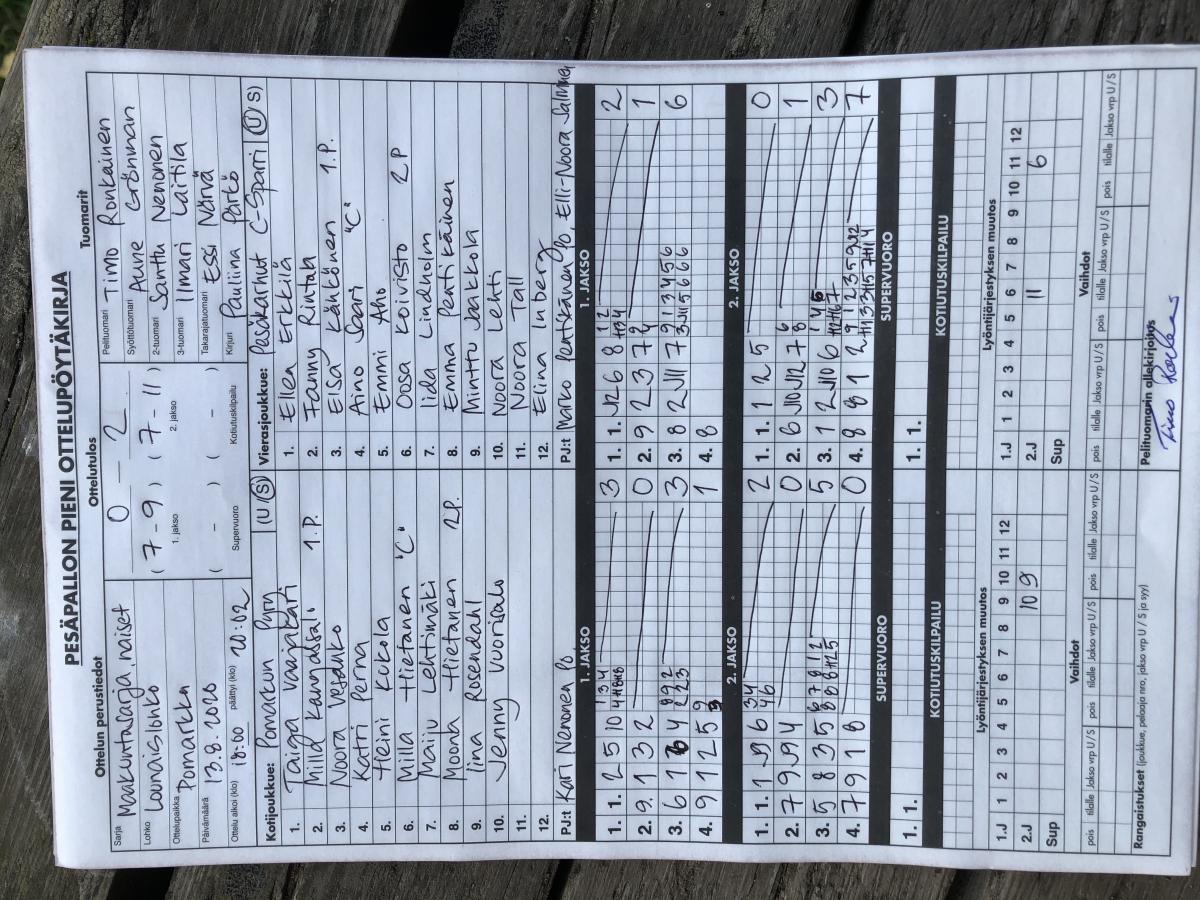 PESÄPALLON PIENI OTTELUPÖYTÄKIRJA
Ottelun perustiedot
Sarja Maakuntasarja, naiset
Lohko Lounaislohko
Ottelupaikka Pomarkku
Päivämäärä 13.8.2020
Ottelu alkoi (klo) 18:00 päättyi (klo) 20:02
Ottelutulos
0 – 2
( 7 – 9 ) ( 7 – 11 )
1. jakso 2. jakso
( – ) ( – )
Supervuoro Kotiutuskilpailu
Tuomarit
Pelituomari Timo Ronkainen
Syöttötuomari Aune Grönman
2-tuomari Santtu Nenonen
3-tuomari Ilmari Laitila
Takarajatuomari Essi Närvä
Kirjuri Pauliina Parkö
Kotijoukkue: Pomarkun Pyry (U / S)
1. Taiga Vanajakari
2. Milla Kangassalo 1.P.
3. Noora Vesanko
4. Katri Perna
5. Heini Kokola
6. Milla Hietanen "C"
7. Maiju Lehtimäki
8. Moona Hietanen 2P.
9. Iina Rosendahl
10. Jenny Vuorisalo
11.
12.
PJ:t Kari Nenonen Po,
Vierasjoukkue: Pesäkarhut C-Sparri (U / S)
1. Ellea Erkkilä
2. Fanny Rintala
3. Elsa Kähkönen 1.P.
4. Aino Saari "C"
5. Emmi Aho
6. Oosa Koivisto 2P
7. Iida Lindholm
8. Emma Pentikäinen
9. Minttu Jaakkola
10. Noora Lehti
11. Noora Tall
12. Elina Inberg
PJ:t Marko Pentikäinen Po, Elli-Noora Salminen
1. JAKSO 1. JAKSO
1. 1. 2 5 10 3
2. 9. 1 3 2 0
3. 6 1 6 4 3
4. 9 1 2 5 1
1. 1. J2 6 8 2
2. 9 2 3 7 1
3. 8 2 J11 7 6
4. 8
2. JAKSO 2. JAKSO
1. 1. 1 J9 6 2
2. 7 9 J9 4 0
3. 5 8 3 5 5
4. 7 9 1 8 0
1. 1. 1 2 5 0
2. 6 J10 J12 7 1
3. 1 2 J10 6 3
4. 8 8 1 2 7
SUPERVUORO SUPERVUORO
1. 1.
1. 1.
KOTIUTUSKILPAILU KOTIUTUSKILPAILU
Lyöntijärjestyksen muutos
1.J 1 2 3 4 5 6 7 8 9 10 11 12
2.J 10 9
Sup
Lyöntijärjestyksen muutos
1.J 1 2 3 4 5 6 7 8 9 10 11 12
2.J 11 6
Sup
Vaihdot
pois tilalle Jakso vrp U / S pois tilalle Jakso vrp U / S pois tilalle Jakso vrp U / S
Vaihdot
pois tilalle Jakso vrp U / S pois tilalle Jakso vrp U / S pois tilalle Jakso vrp U / S
Rangaistukset (joukkue, pelaaja nro, jakso vrp U / S ja syy)
Pelituomarin allekirjoitus